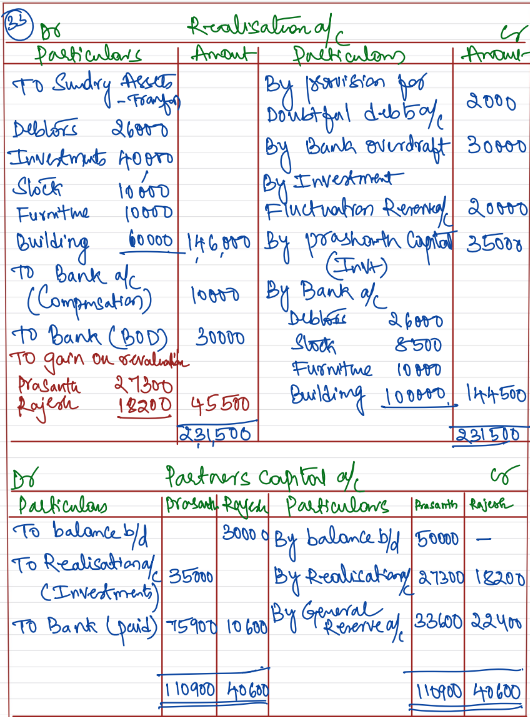 33 Dr Realisation a/c Cr
Particulars Amount Particulars Amount
To Sundry Assets
- Transfer
Debtors 26000
Investments 40000
Stock 10000
Furniture 10000
Building 60000 146,000
To Bank a/c
(Compensation) 10000
To Bank (BOD) 30000
To gain on revaluation
Prasanta 27300
Rajesh 18200 45500
231500
By provision for
Doubtful debts a/c 2000
By Bank overdraft 30000
By Investment
Fluctuation Reserve a/c 20000
By prashanth Capital 35000
(Invt)
By Bank a/c
Debtors 26000
Stock 8500
Furniture 10000
Building 100000 144500
231500
Dr Partners Capital a/c Cr
Particulars Prasanth Rajesh Particulars Prasanth Rajesh
To balance b/d 30000 By balance b/d 50000 –
To Realisation a/c 35000 By Realisation a/c 27300 18200
(Investments)
To Bank (paid) 75900 10600 By General
Reserve a/c 33600 22400
110900 40600 110900 40600